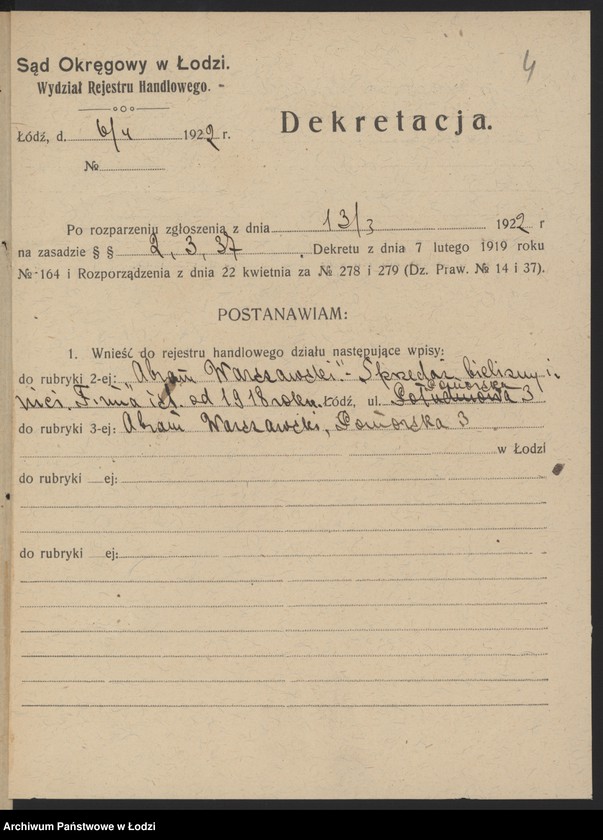 Sąd Okręgowy w Łodzi.
Wydział Rejestru Handlowego.
4
Dekretacja.
Łódź, d. 6/4 1922 r.
№
Po rozparzeniu zgłoszenia z dnia 13/3 1922 r
na zasadzie § § 2, 3, 37 . Dekretu z dnia 7 lutego 1919 roku
№ 164 i Rozporządzenia z dnia 22 kwietnia za № 278 i 279 (Dz. Praw. № 14 i 37).
POSTANAWIAM:
1. Wnieść do rejestru handlowego działu następujące wpisy:
do rubryki 2-ej: "Abram Warszawski" - Sprzedaż bielizny i
nici. Firma ist. od 1918 roku. Łódź, ul. Południowa Pomorska 3
do rubryki 3-ej: Abram Warszawski, Pomorska 3
w Łodzi
do rubryki ej:
do rubryki ej:
Archiwum Państwowe w Łodzi